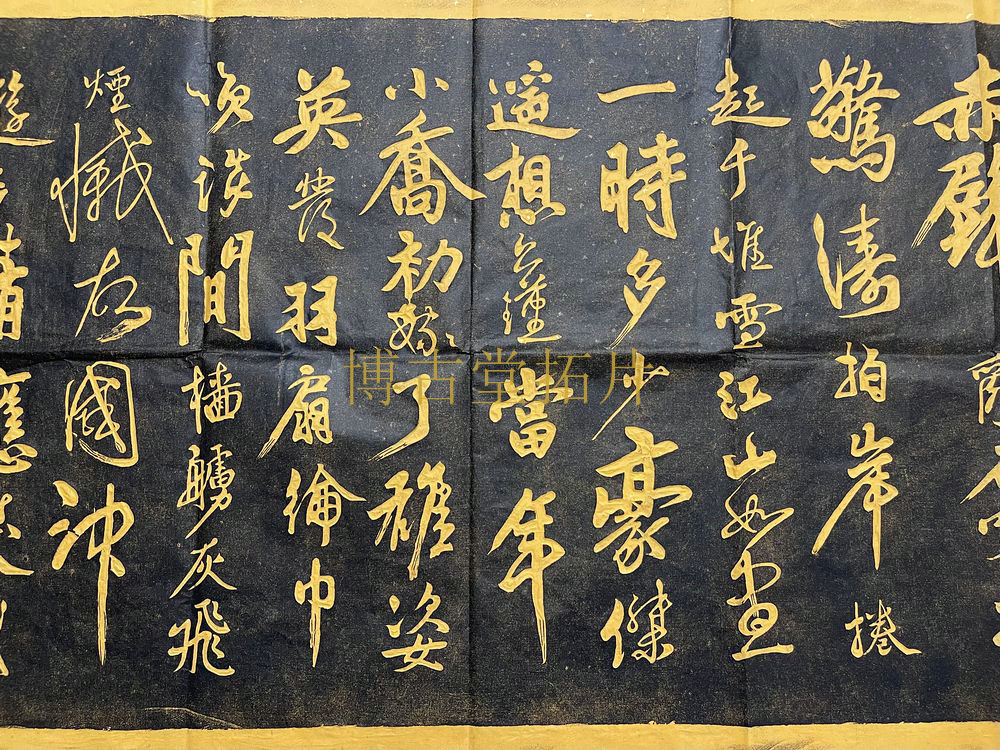 赤壁
驚濤拍岸捲
起千堆雪江山如畫
一時多少豪傑
遥想公瑾當年
小喬初嫁了雄姿
英發羽扇綸巾
笑談間檣艣灰飛
煙滅故國神
遊多情應笑我
博古堂拓片